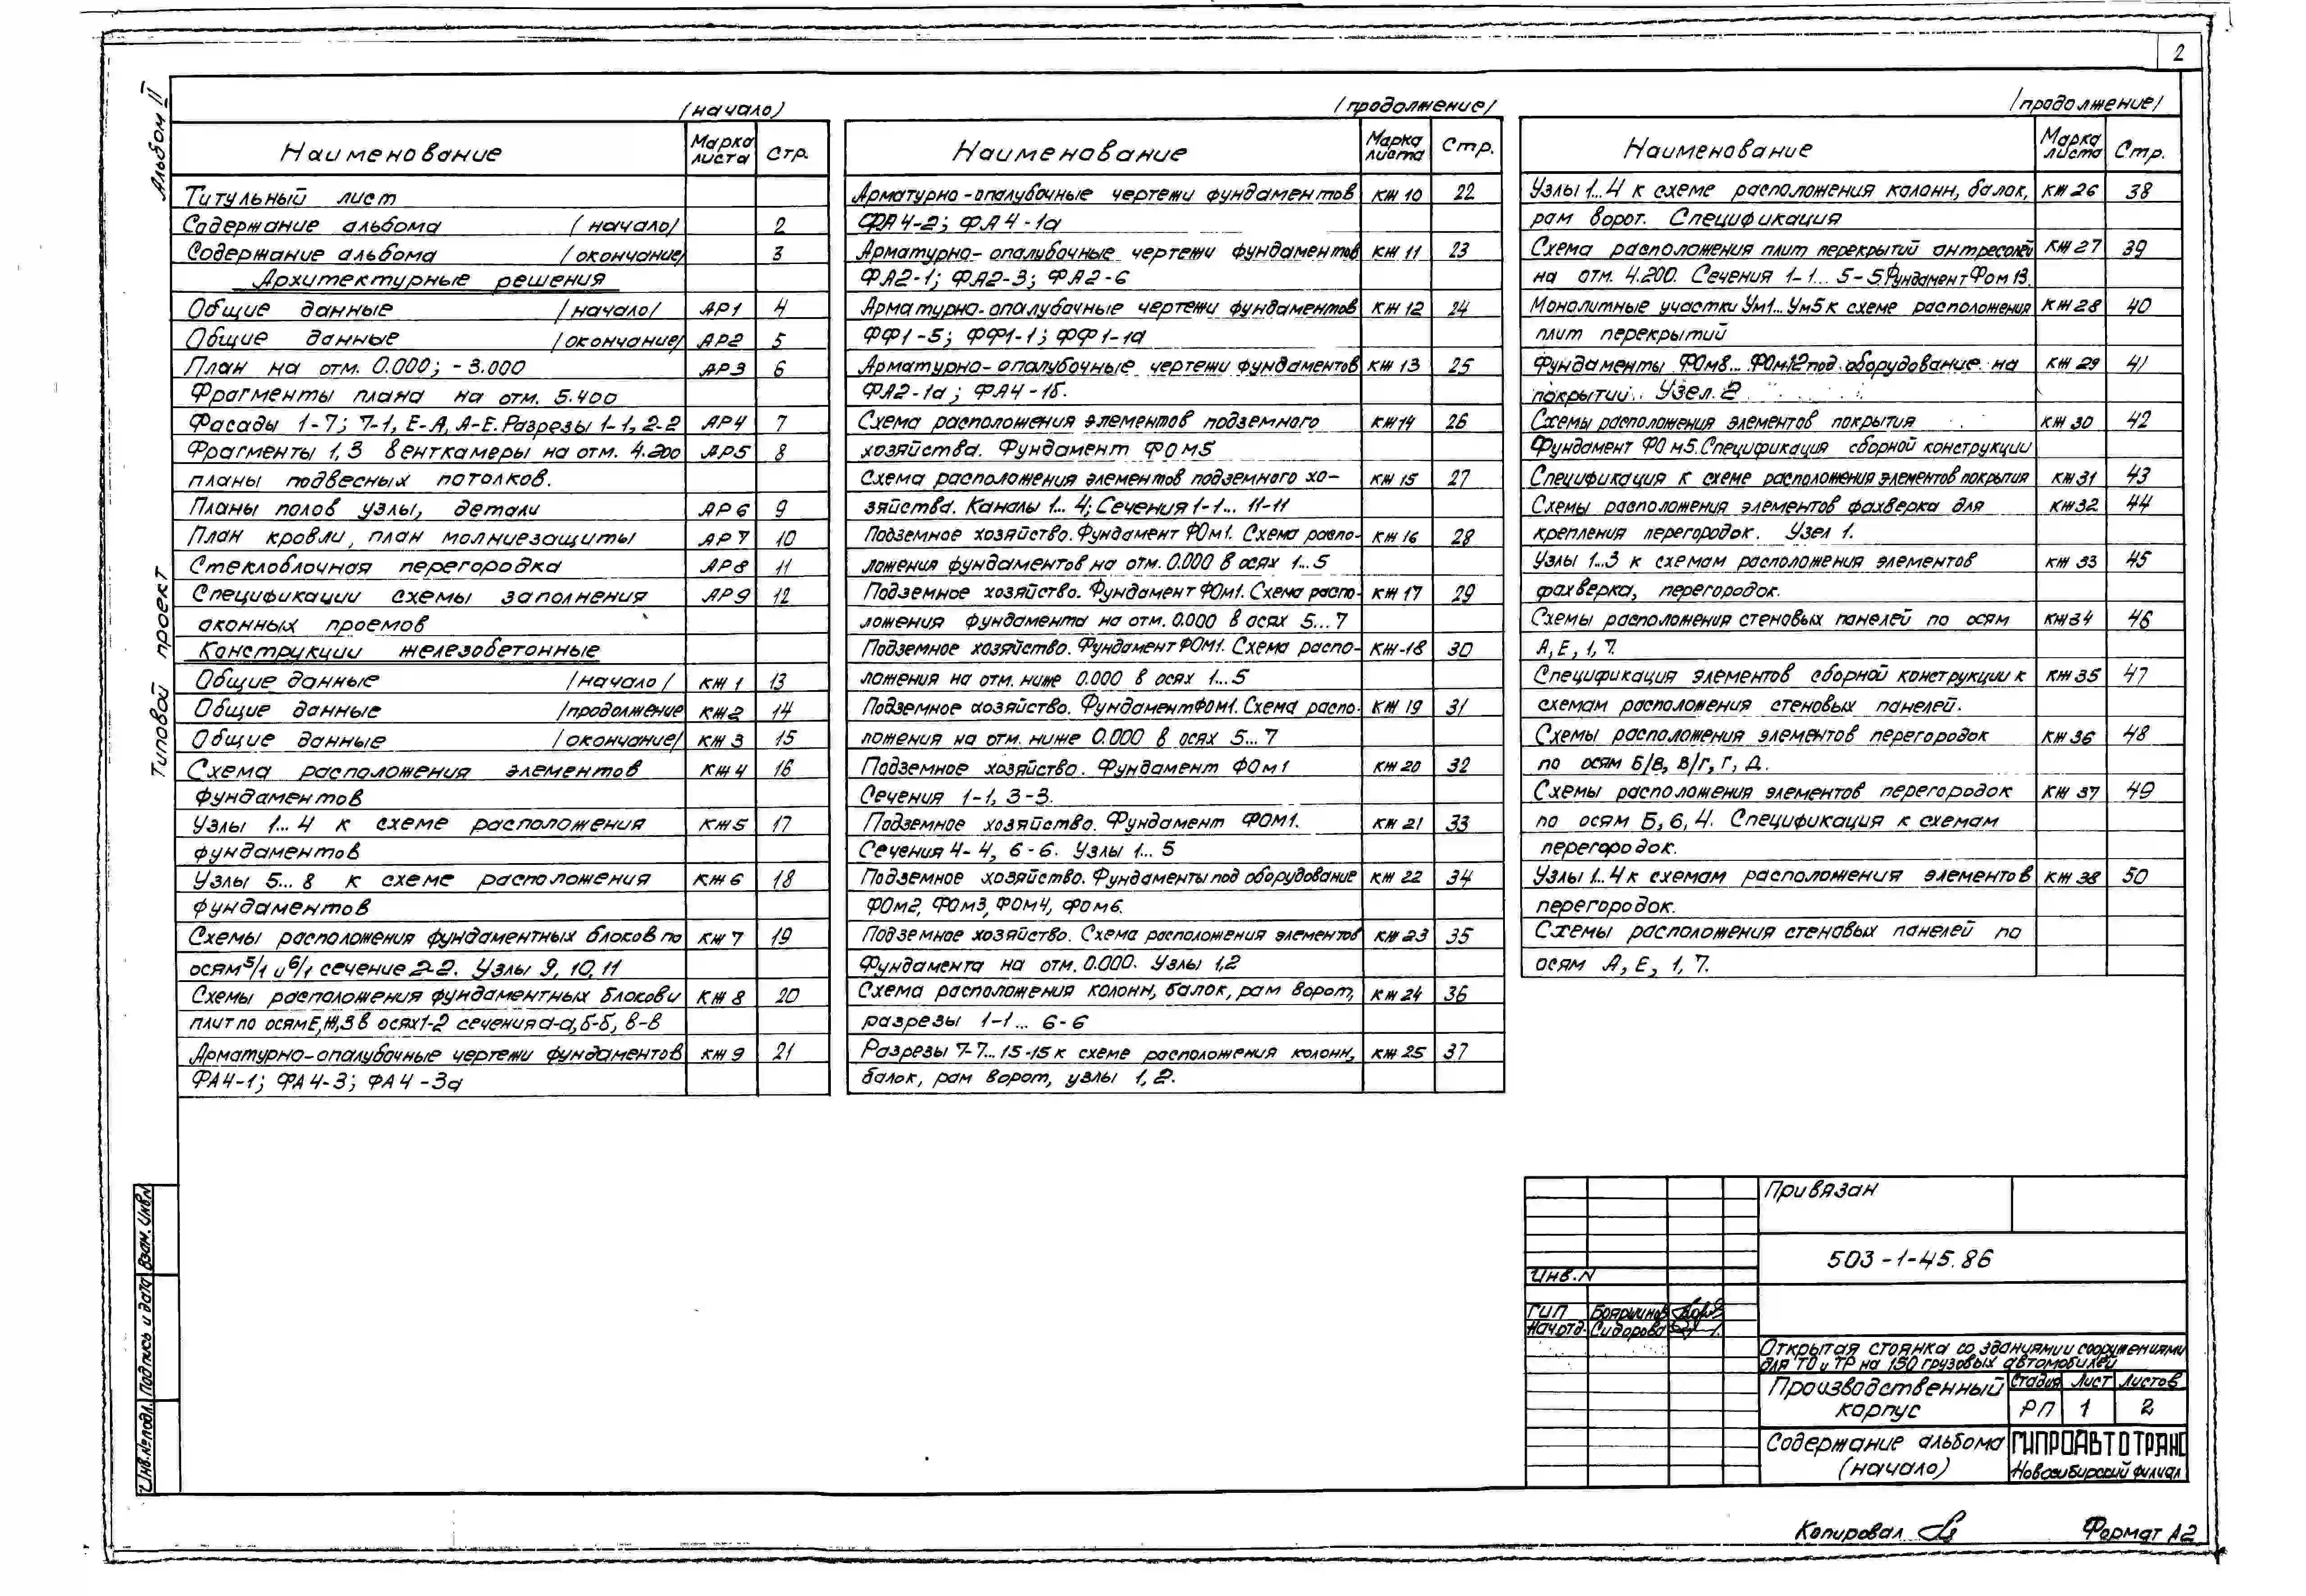 2
Альбом II
Типовой проект
(начало)
Наименование Марка листа Стр.
Титульный лист
Содержание альбома (начало/ 2
Содержание альбома (окончание/ 3
Архитектурные решения
Общие данные /начало/ АР1 4
Общие данные /окончание/ АР2 5
План на отм. 0.000; -3.000 АР3 6
Фрагменты плана на отм. 5.400
Фасады 1-7; 7-1, Е-А, А-Е. Разрезы 1-1, 2-2 АР4 7
Фрагменты 1, 3 венткамеры на отм. 4.200 АР5 8
планы подвесных потолков.
Планы полов узлы, детали АР6 9
План кровли, план молниезащиты АР7 10
Стеклоблочная перегородка АР8 11
Спецификации схемы заполнения АР9 12
оконных проемов
Конструкции железобетонные
Общие данные /начало/ КЖ 1 13
Общие данные /продолжение КЖ2 14
Общие данные /окончание/ КЖ 3 15
Схема расположения элементов КЖ 4 16
фундаментов
Узлы 1...4 к схеме расположения КЖ5 17
фундаментов
Узлы 5...8 к схеме расположения КЖ 6 18
фундаментов
Схемы расположения фундаментных блоков по КЖ 7 19
осям 5/1 и 6/1 сечение 2-2. Узлы 9, 10, 11
Схемы расположения фундаментных блоков и КЖ 8 20
плит по осям Е, Ж, З в осях 1-2 сечения а-а, б-б, в-в
Арматурно-опалубочные чертежи фундаментов КЖ 9 21
ФА4-1; ФА4-3; ФА4-3а
/продолжение/
Наименование Марка листа Стр.
Арматурно-опалубочные чертежи фундаментов КЖ 10 22
ФА4-2; ФА4-1а
Арматурно-опалубочные чертежи фундаментов КЖ 11 23
ФА2-1; ФА2-3; ФА2-6
Арматурно-опалубочные чертежи фундаментов КЖ 12 24
ФФ1-5; ФФ1-1; ФФ1-1а
Арматурно-опалубочные чертежи фундаментов КЖ 13 25
ФА2-1а; ФА4-1б.
Схема расположения элементов подземного КЖ14 26
хозяйства. Фундамент ФОм5
Схема расположения элементов подземного хо- КЖ 15 27
зяйства. Каналы 1...4; Сечения 1-1... 11-11
Подземное хозяйство. Фундамент ФОм1. Схема распо- КЖ 16 28
ложения фундаментов на отм. 0.000 в осях 1...5
Подземное хозяйство. Фундамент ФОм1. Схема распо- КЖ 17 29
ложения фундамента на отм. 0.000 в осях 5...7
Подземное хозяйство. Фундамент ФОм1. Схема распо- КЖ-18 30
ложения на отм. ниже 0.000 в осях 1...5
Подземное хозяйство. Фундамент ФОм1. Схема распо- КЖ 19 31
ложения на отм. ниже 0.000 в осях 5...7
Подземное хозяйство. Фундамент ФОм1 КЖ 20 32
Сечения 1-1, 3-3.
Подземное хозяйство. Фундамент ФОм1. КЖ 21 33
Сечения 4-4, 6-6. Узлы 1...5
Подземное хозяйство. Фундаменты под оборудование КЖ 22 34
ФОм2, ФОм3, ФОм4, ФОм6.
Подземное хозяйство. Схема расположения элементов КЖ 23 35
Фундамента на отм. 0.000. Узлы 1,2
Схема расположения колонн, балок, рам ворот, КЖ 24 36
разрезы 1-1... 6-6
Разрезы 7-7...15-15 к схеме расположения колонн, КЖ 25 37
балок, рам ворот, узлы 1, 2.
/продолжение/
Наименование Марка листа Стр.
Узлы 1...4 к схеме расположения колонн, балок, КЖ 26 38
рам ворот. Спецификация
Схема расположения плит перекрытий антресолей КЖ 27 39
на отм. 4.200. Сечения 1-1... 5-5. Фундамент ФОм 13.
Монолитные участки Ум1... Ум5 к схеме расположения КЖ 28 40
плит перекрытий
Фундаменты ФОм8... ФОм12 под оборудование на КЖ 29 41
покрытии. Узел 2
Схемы расположения элементов покрытия КЖ 30 42
Фундамент ФОм5. Спецификация сборной конструкции
Спецификация к схеме расположения элементов покрытия КЖ31 43
Схемы расположения элементов фахверка для КЖ32 44
крепления перегородок. Узел 1.
Узлы 1...3 к схемам расположения элементов КЖ 33 45
фахверка, перегородок.
Схемы расположения стеновых панелей по осям КЖ34 46
А, Е, 1, 7.
Спецификация элементов сборной конструкции к КЖ 35 47
схемам расположения стеновых панелей.
Схемы расположения элементов перегородок КЖ 36 48
по осям Б/В, В/Г, Г, Д.
Схемы расположения элементов перегородок КЖ 37 49
по осям Б, 6, 4. Спецификация к схемам
перегородок.
Узлы 1...4 к схемам расположения элементов КЖ 38 50
перегородок.
Схемы расположения стеновых панелей по
осям А, Е, 1, 7.
Взам. Инв.N
Подпись и дата
Инв. № подл.
Привязан
Инв. N
503-1-45.86
ГИП Бояршинов
Нач.отд. Сидорова
Открытая стоянка со зданиями и сооружениями
для ТО и ТР на 150 грузовых автомобилей
Производственный корпус
Стадия Лист Листов
РП 1 2
Содержание альбома (начало)
ГИПРОАВТОТРАНС
Новосибирский филиал
Копировал
Формат А2